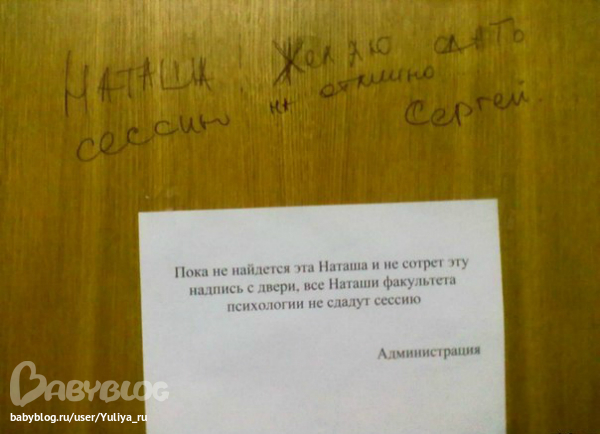 Наташа! Желаю сдать
сессию на отлично
Сергей.
Пока не найдется эта Наташа и не сотрет эту
надпись с двери, все Наташи факультета
психологии не сдадут сессию
Администрация
BABYBLOG
babyblog.ru/user/Yuliya_ru